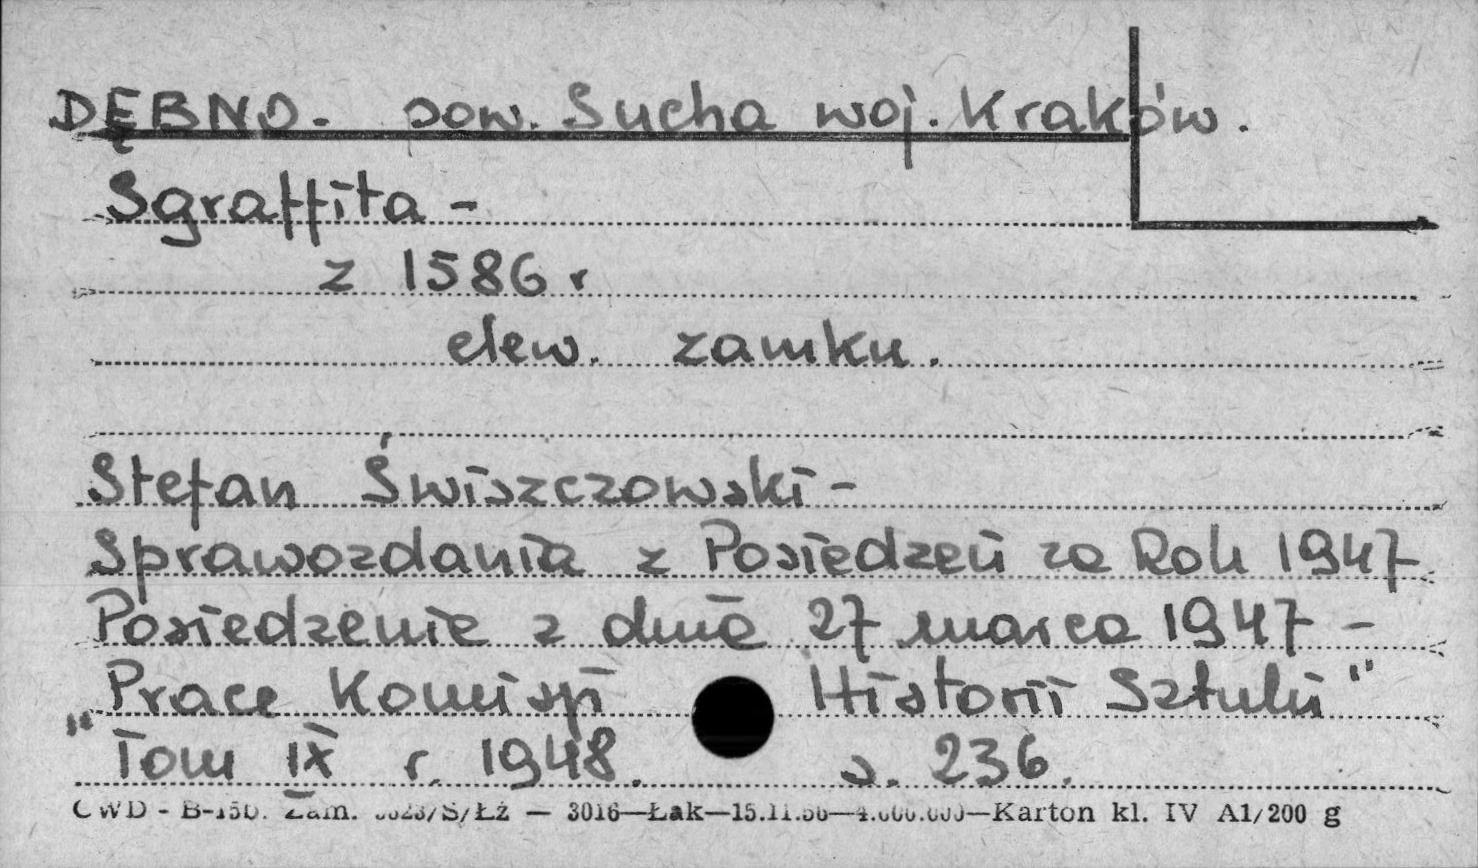 DĘBNO. pow. Sucha woj. Kraków.
Sgraffita -
z 1586 r
elew. zamku.
Stefan Świszczowski -
Sprawozdania z Posiedzeń za Rok 1947
Posiedzenie z dnia 27 marca 1947 -
„Prace Komisji Historii Sztuki"
Tom IX r. 1948. s. 236.
CWD - B-150. Zam. /S/Łż — 3016—Łak—15.11.56—4.000.000—Karton kl. IV A1/200 g